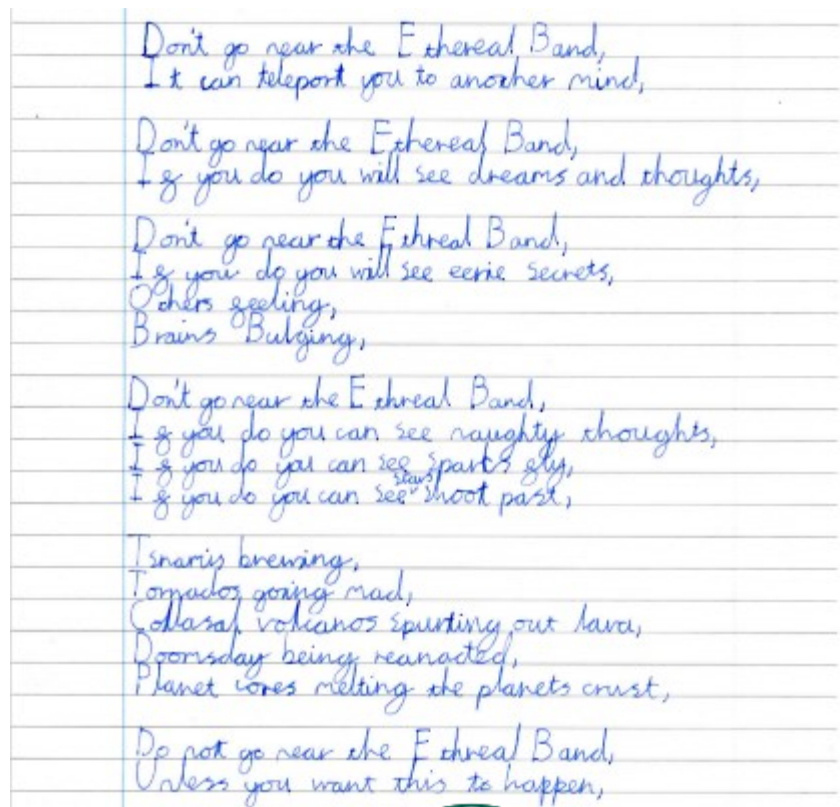 Don't go near the Ethereal Band,
It can teleport you to another mind,
Don't go near the Ethereal Band,
If you do you will see dreams and thoughts,
Don't go near the Ethreal Band,
If you do you will see eerie secrets,
Others feeling,
Brains Bulging,
Don't go near the Ethreal Band,
If you do you can see naughty thoughts,
If you do you can see sparks fly,
If you do you can see stars shoot past,
Tsnamis brewing,
Tornados going mad,
Collasal volcanos spurting out lava,
Doomsday being reanacted,
Planet cores melting the planets crust,
Do not go near the Ethreal Band,
Unless you want this to happen,